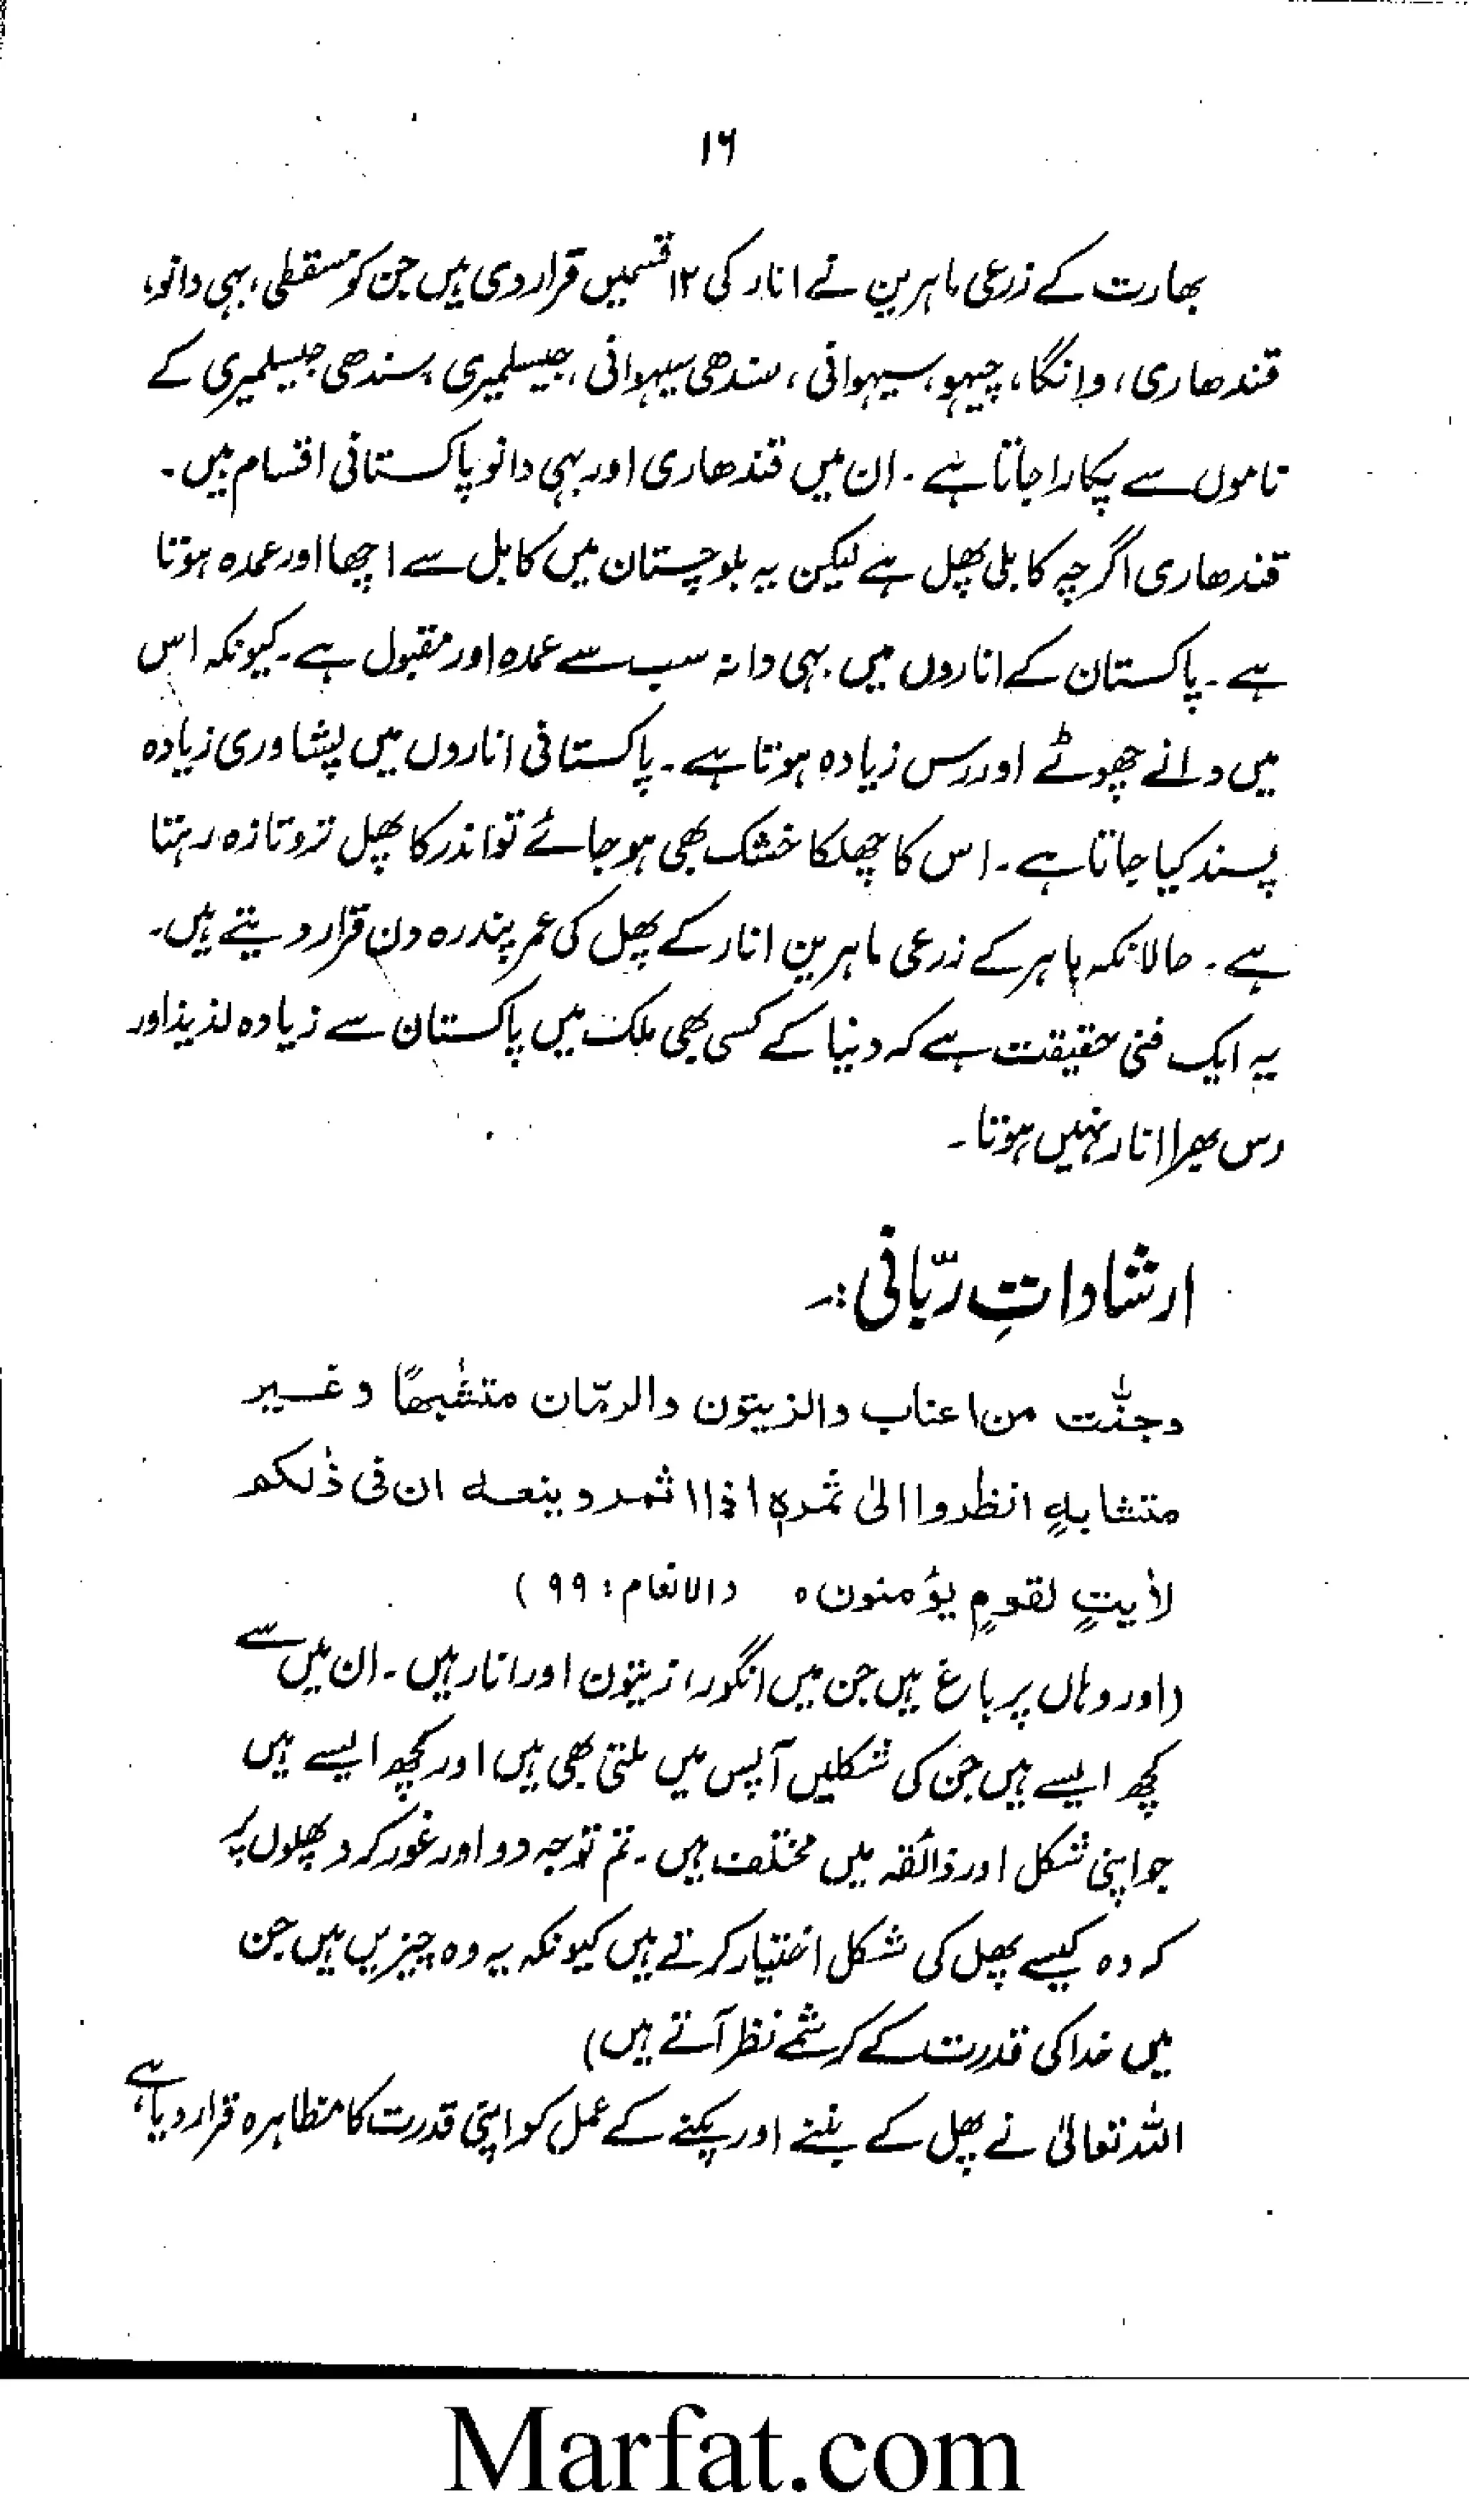 ۱۶
بھارت کے زرعی ماہرین نے انار کی ۱۲ قسمیں قرار دی ہیں جن کو مسقطی، بہی دانو،
قندھاری، وانگا، چیہو، سیہوانی، سندھی سیہوانی، جیسلمیری، سندھی جیسلمیری کے
ناموں سے پکارا جاتا ہے۔ ان میں قندھاری اور بہی دانو پاکستانی اقسام ہیں۔
قندھاری اگرچہ کابلی پھل ہے لیکن یہ بلوچستان میں کابل سے اچھا اور عمدہ ہوتا
ہے۔ پاکستان کے اناروں میں بہی دانہ سب سے عمدہ اور مقبول ہے۔ کیونکہ اس
میں دانے چھوٹے اور رس زیادہ ہوتا ہے۔ پاکستانی اناروں میں پشاوری زیادہ
پسند کیا جاتا ہے۔ اس کا چھلکا خشک بھی ہو جائے تو اندر کا پھل تروتازہ رہتا
ہے۔ حالانکہ باہر کے زرعی ماہرین انار کے پھل کی عمر پندرہ دن قرار دیتے ہیں۔
یہ ایک فنی حقیقت ہے کہ دنیا کے کسی بھی ملک میں پاکستان سے زیادہ لذیذ اور
رس بھرا انار نہیں ہوتا۔
ارشاداتِ ربّانی:۔
وجنّٰت من اعناب والزیتون والرمّان متشٰبھًا وغیر
متشابہٍ انظروا الیٰ ثمرہٖ اذا اثمر وینعہ ان فی ذٰلکم
لاٰیٰتٍ لقومٍ یؤمنون ہ (الانعام: ۹۹)
(اور وہاں پر باغ ہیں جن میں انگور، زیتون اور انار ہیں۔ ان میں سے
کچھ ایسے ہیں جن کی شکلیں آپس میں ملتی بھی ہیں اور کچھ ایسے ہیں
جو اپنی شکل اور ذائقہ میں مختلف ہیں۔ تم توجہ دو اور غور کرو پھلوں پر
کہ وہ کیسے پھل کی شکل اختیار کرتے ہیں کیونکہ یہ وہ چیزیں ہیں جن
میں خدا کی قدرت کے کرشمے نظر آتے ہیں)
اللہ تعالیٰ نے پھل کے بننے اور پکنے کے عمل کو اپنی قدرت کا مظاہرہ قرار دیا ہے،
Marfat.com